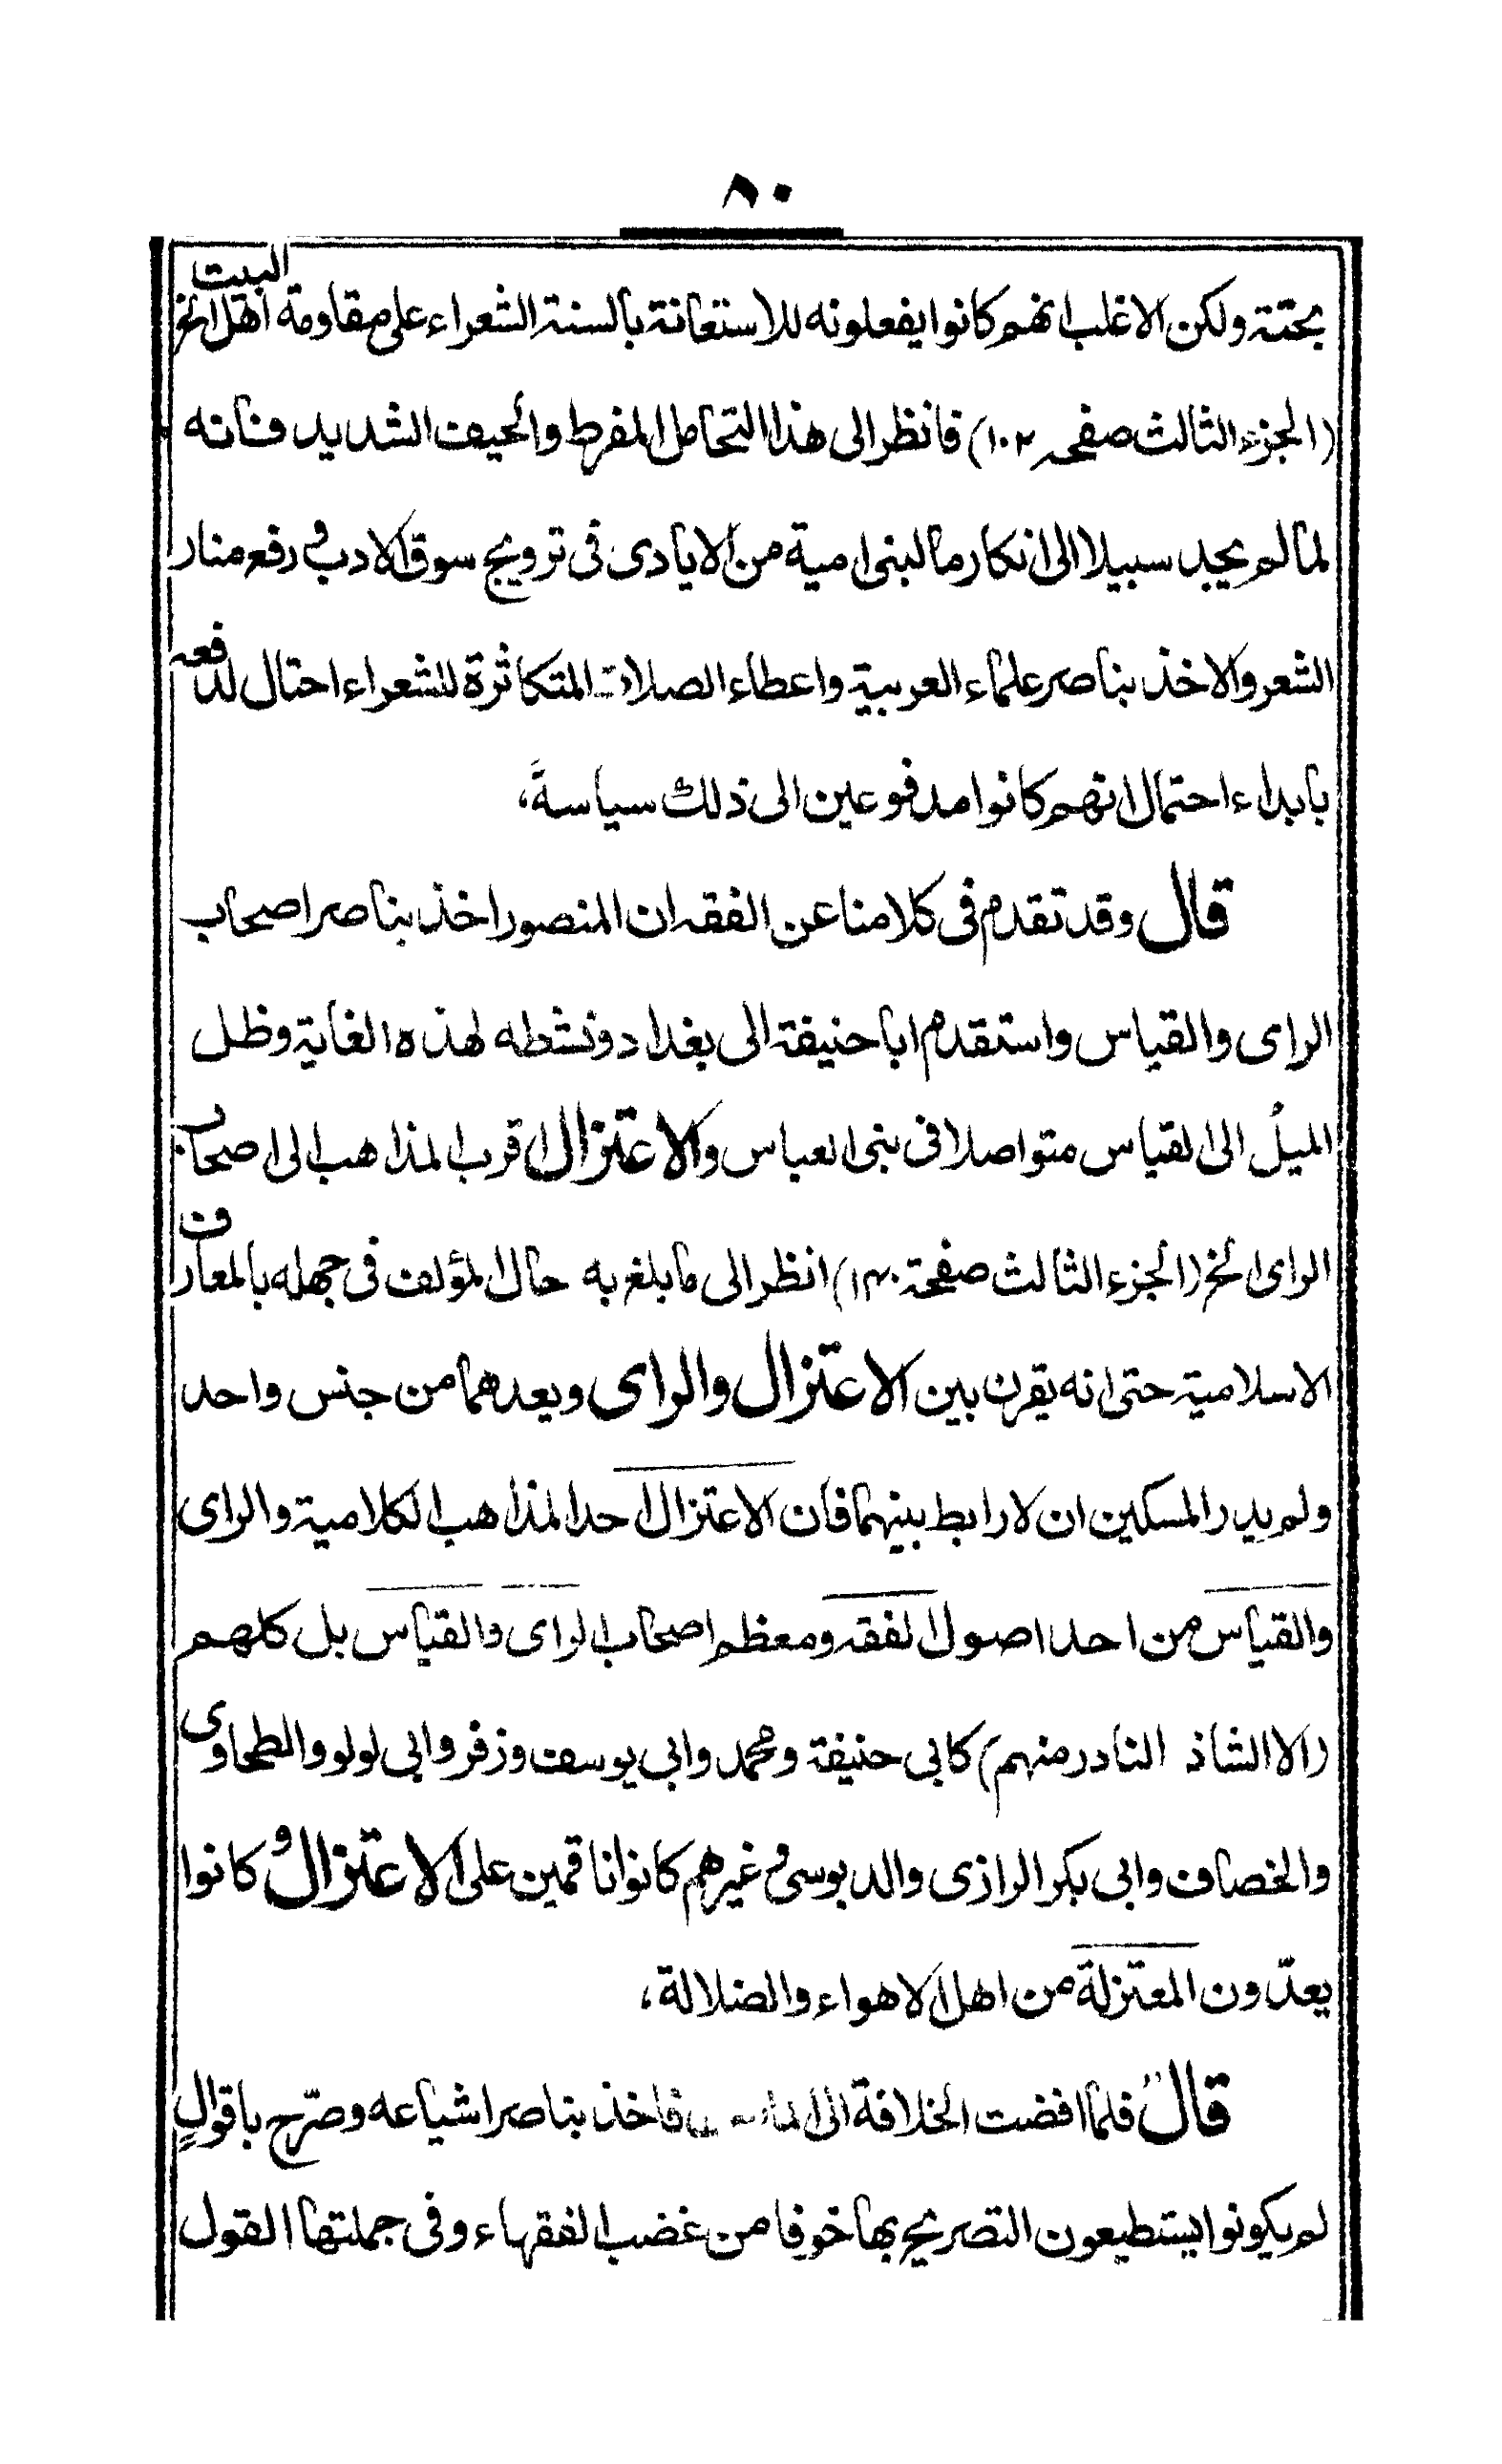 ٨٠
بحقه ولكن الاغلب انهم كانوا يفعلونه للاستعانة بالسنة الشعراء على مقاومة اهل البيت الخ
(الجزء الثالث صفحه ١٠٢) فانظر الى هذا التحامل المفرط والحيف الشديد فانه
لما لم يجد سبيلا الى انكار ما لبنى امية من الايادى فى ترويج سوق الادب و رفع منار
الشعر والاخذ بناصر علماء العربية واعطاء الصلات المتكاثرة للشعراء احتال لدفعه
بابداء احتمال انهم كانوا مدفوعين الى ذلك سياسةً،
قال وقد تقدم فى كلامنا عن الفقه ان المنصور اخذ بناصر اصحاب
الراى والقياس واستقدم ابا حنيفة الى بغداد ونشطه لهذه الغاية وظل
الميلُ الى القياس متواصلا فى بنى العباس والاعتزال اقرب المذاهب الى اصحاب
الراى الخ (الجزء الثالث صفحة ١٤٠) انظر الى ما بلغ به حال المؤلف فى جهله بالمعارف
الاسلامية حتى انه يقرن بين الاعتزال والراى ويعدهما من جنس واحد
ولم يدر المسكين ان لا رابط بينهما فان الاعتزال احد المذاهب الكلامية والراى
والقياس من احد اصول الفقه ومعظم اصحاب الراى والقياس بل كلهم
(الا الشاذ النادر منهم) كابى حنيفة ومحمد وابى يوسف وزفر وابى لولو والطحاوى
والخصاف وابى بكر الرازى والدبوسى و غيرهم كانوا ناقمين على الاعتزال و كانوا
يعدّون المعتزلة من اهل الاهواء والضلالة،
قال فلما افضت الخلافة الى فاخذ بناصر اشياعه وصرّح باقوالٍ
لم يكونوا يستطيعون التصريح بها خوفا من غضب الفقهاء وفى جملتها القول